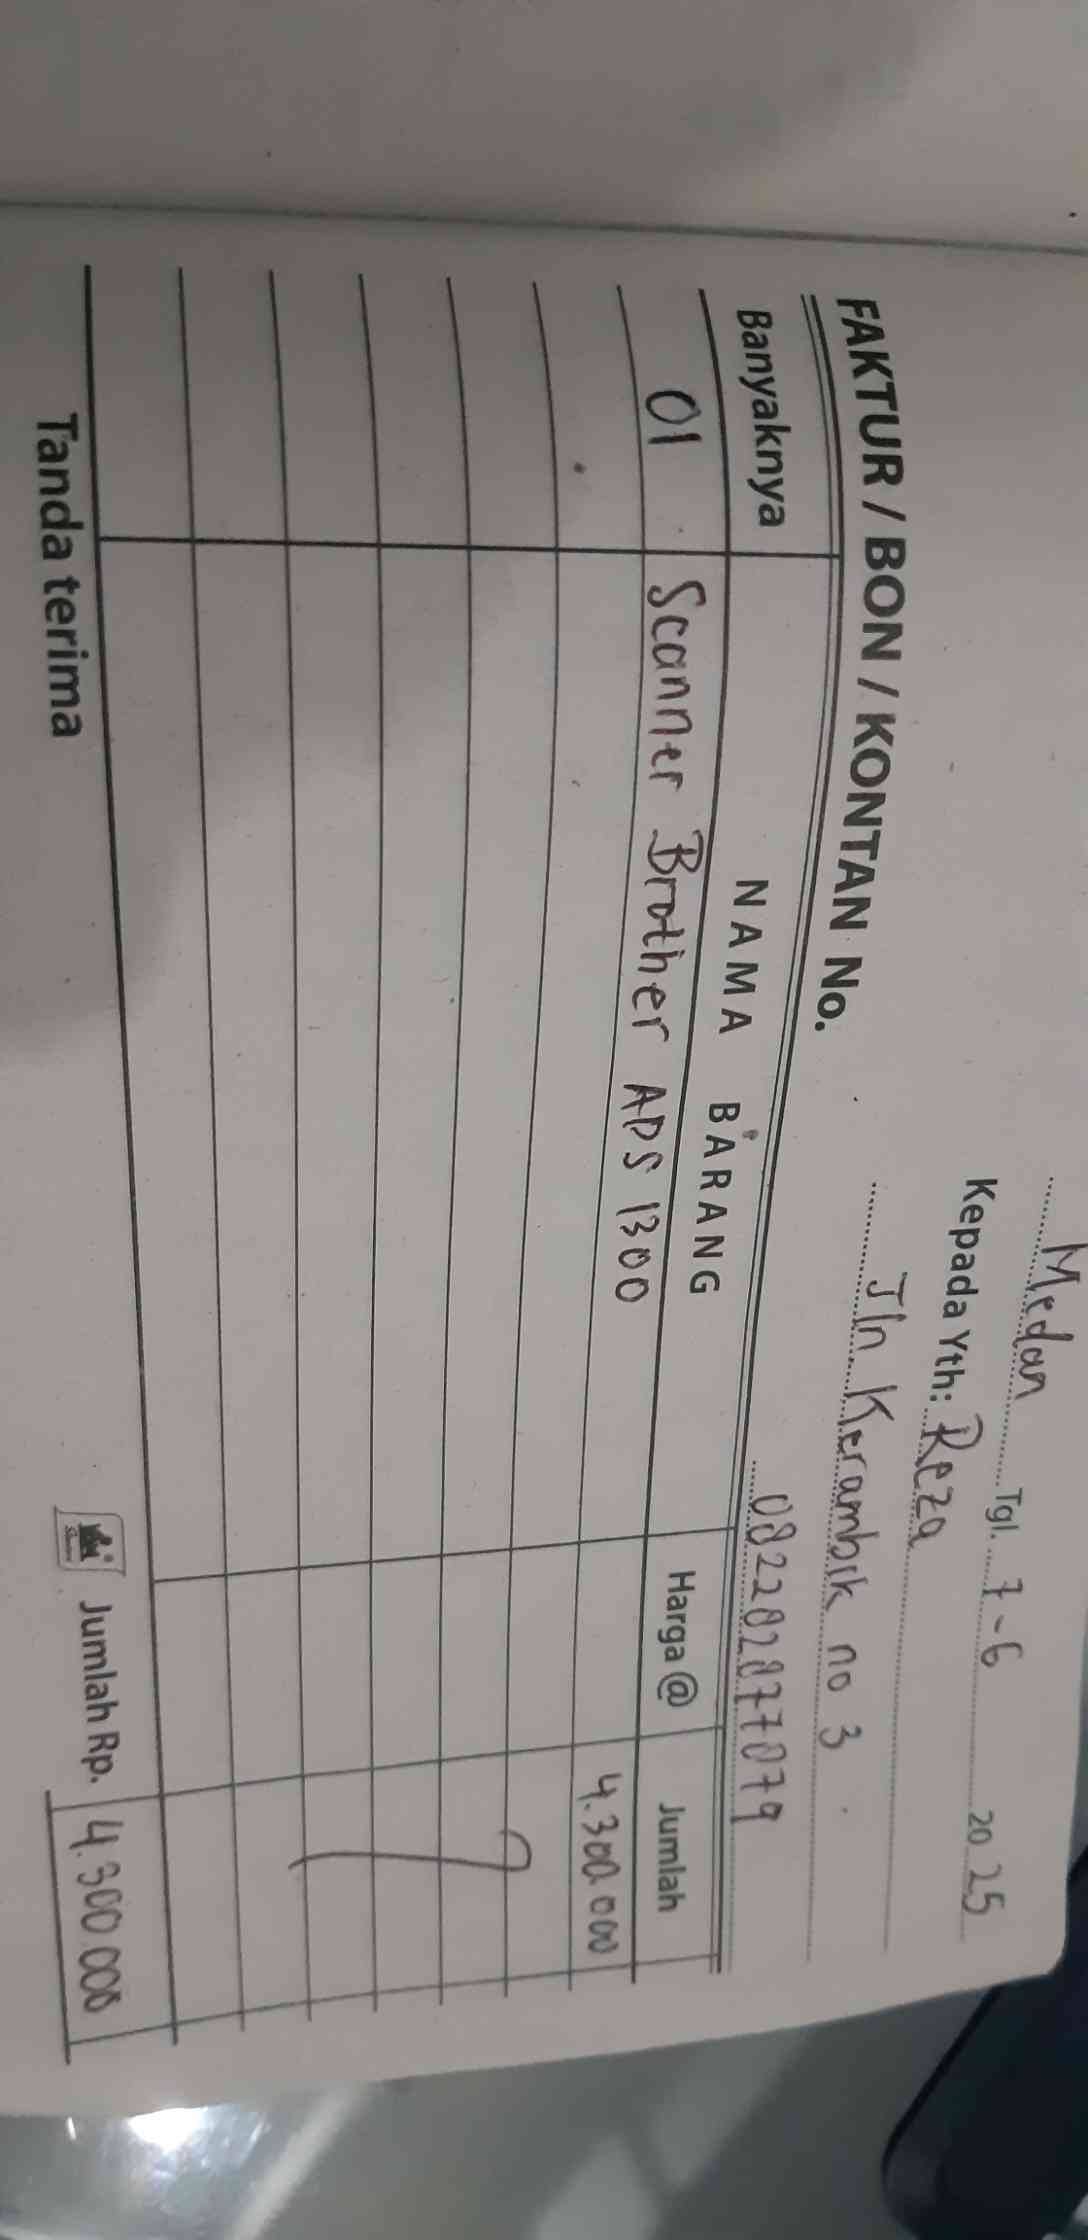 Medan Tgl. 7-6 20 25
Kepada Yth: Reza
Jln Kerambik no 3
FAKTUR / BON / KONTAN No.
082282877879
Banyaknya NAMA BARANG Harga @ Jumlah
01 Scanner Brother ADS 1300 4.300.000
Tanda terima Jumlah Rp. 4.300.000